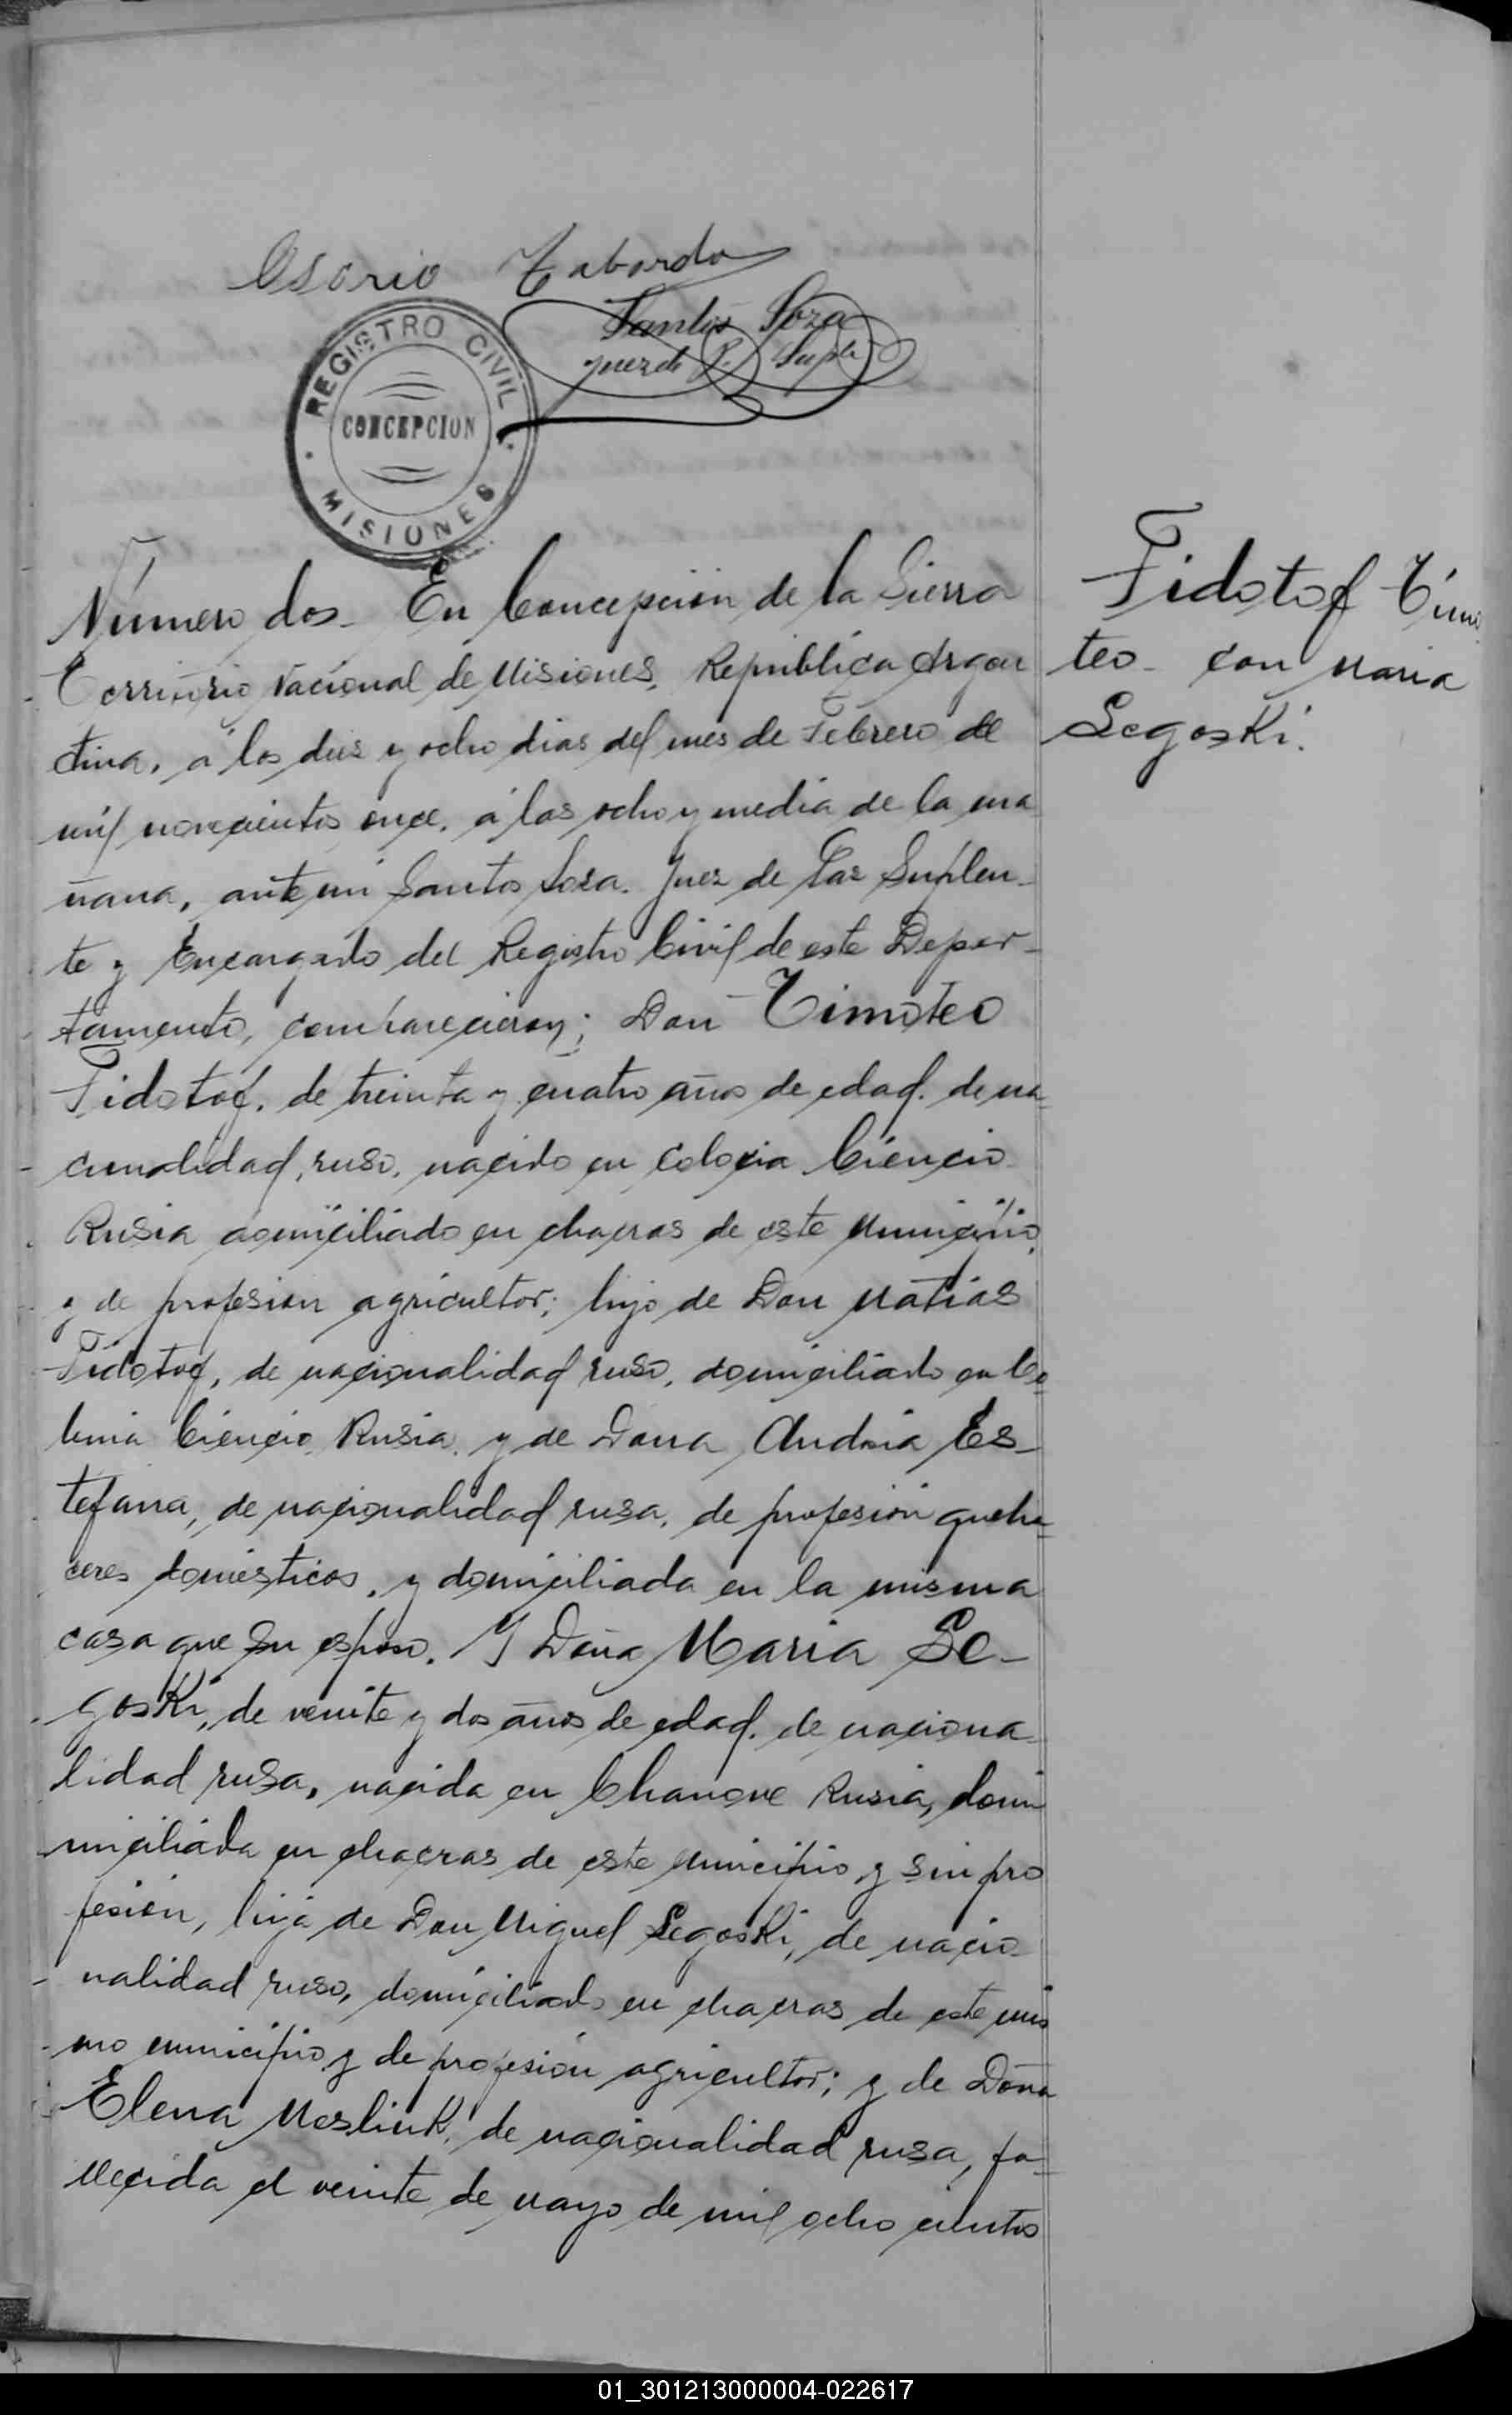 Osorio Taborda
Santos Soza
Juez de P. Suple
REGISTRO CIVIL
CONCEPCION
MISIONES
Número dos. En Concepción de la Sierra
Territorio Nacional de Misiones, República Argen
tina, á los diez y ocho dias del mes de Febrero de
mil novecientos once, á las ocho y media de la ma
ñana, ante mi Santos Soza. Juez de Paz Suplen-
te y Encargado del Registro Civil de este Depar-
tamento, comparecieron; Don Timoteo
Fidotof, de treinta y cuatro años de edad, de na-
cionalidad, ruso, nacido en Colocia Ciencio
Rusia domiciliado en chacras de este municipio,
y de profesion agricultor; hijo de Don Matias
Fidotof, de nacionalidad ruso, domiciliado en Co-
lonia Ciencio Rusia, y de Dona Andria Es-
tefana, de nacionalidad rusa, de profesión queha-
ceres domésticos, y domiciliada en la misma
casa que su esposo. Y Doña Maria Se-
goski, de veinte y dos años de edad, de naciona
lidad rusa, nacida en Chanove Rusia, domi
miciliada en chacras de este municipio y sin pro
fesión, hija de Don Miguel Segoski, de nacio-
nalidad ruso, domiciliado en chacras de este mis
mo municipio y de profesión agricultor; y de Doña
Elena Meslink, de nacionalidad rusa, fa-
llecida el veinte de mayo de mil ocho cientos
Fidotof Timo
teo con Maria
Segoski.
01_301213000004-022617